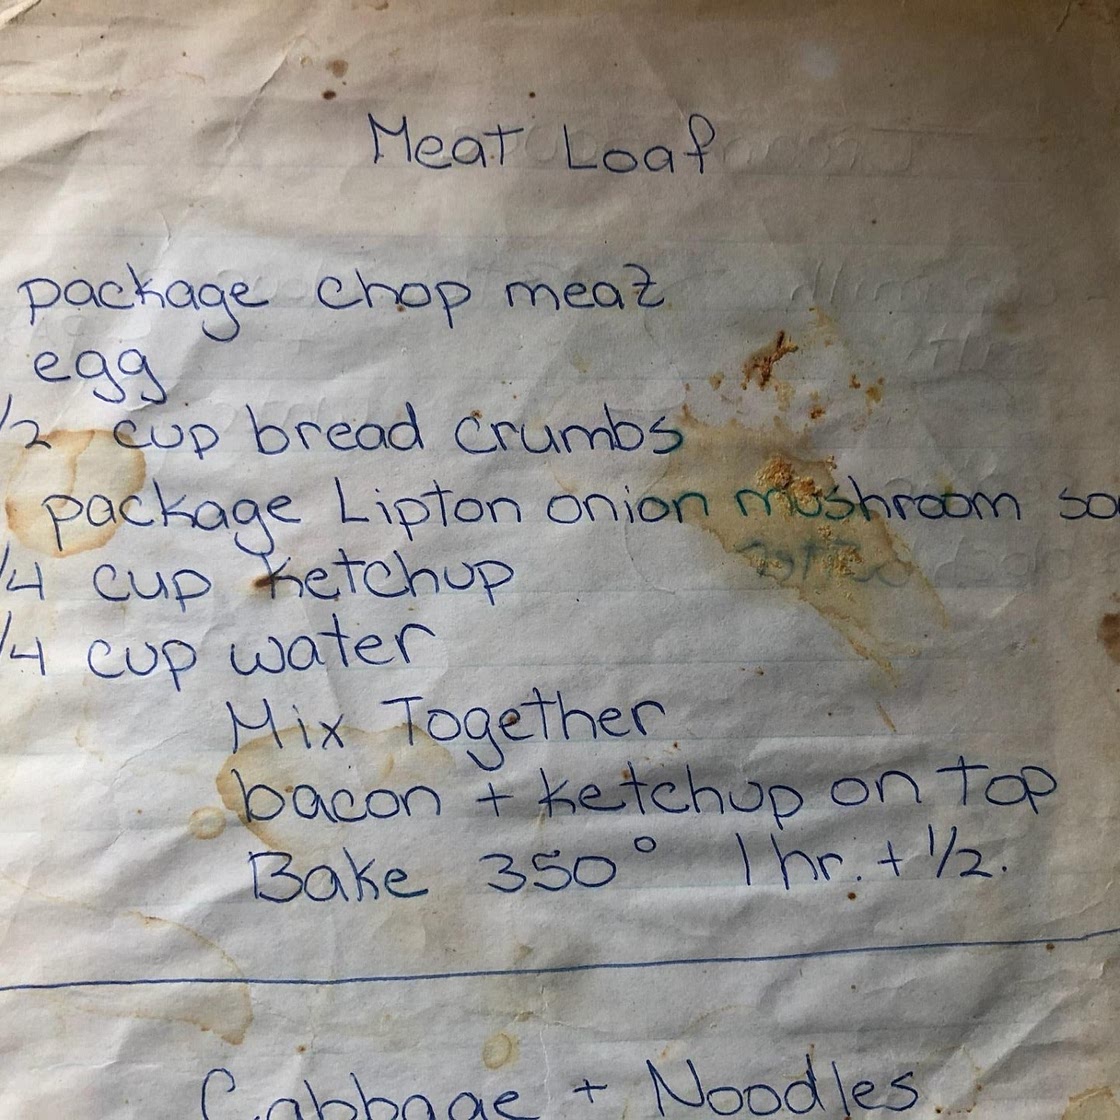 Meat Loaf
package chop meat
egg
1/2 cup bread crumbs
package Lipton onion mushroom so
1/4 cup ketchup
1/4 cup water
Mix Together
bacon + ketchup on top
Bake 350° 1 hr. + 1/2.
Cabbage + Noodles